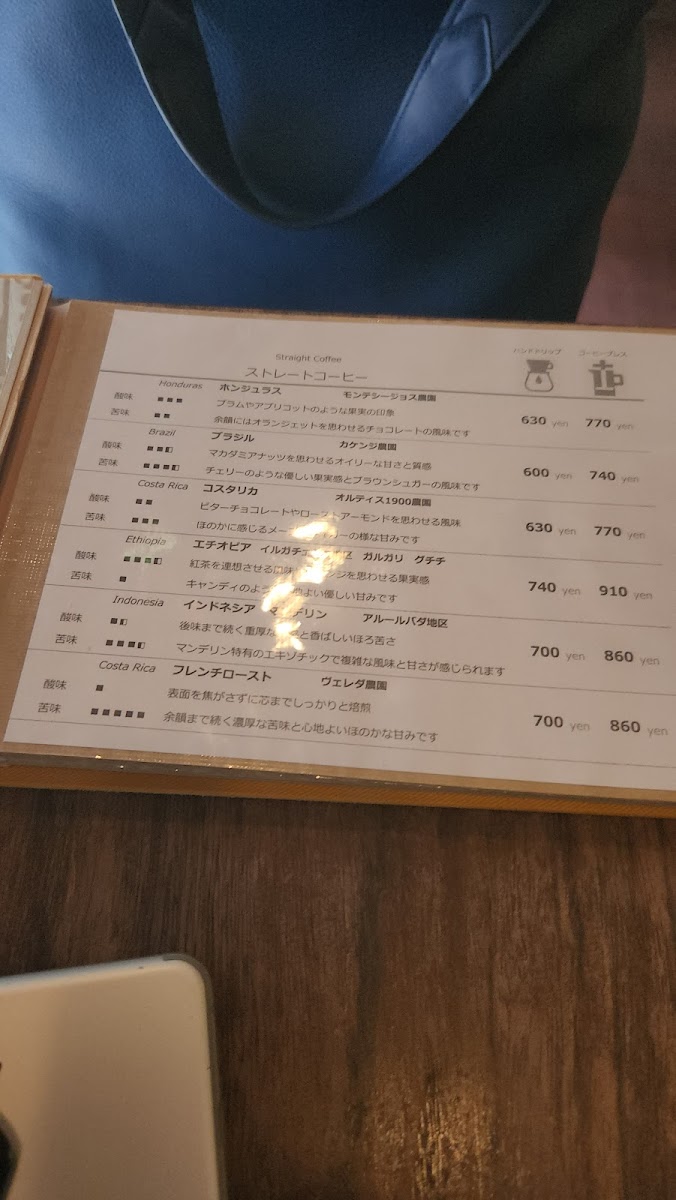 Straight Coffee
ストレートコーヒー
ハンドドリップ コーヒープレス
Honduras ホンジュラス モンテシージョス農園
酸味 ■■■ プラムやアプリコットのような果実の印象
苦味 ■■ 余韻にはオランジェットを思わせるチョコレートの風味です
630 yen 770 yen
Brazil ブラジル カケンジ農園
酸味 マカダミアナッツを思わせるオイリーな甘さと質感
苦味 チェリーのような優しい果実感とブラウンシュガーの風味です
600 yen 740 yen
Costa Rica コスタリカ オルティス1900農園
酸味 ■■ ビターチョコレートやローストアーモンドを思わせる風味
苦味 ■■■ ほのかに感じる様な甘みです
630 yen 770 yen
Ethiopia エチオピア ガルガリ グチチ
酸味 紅茶を連想させる を思わせる果実感
苦味 ■ キャンディのよう 地よい優しい甘みです
740 yen 910 yen
Indonesia インドネシア マンデリン アールルバダ地区
酸味 後味まで続く重厚な と香ばしいほろ苦さ
苦味 マンデリン特有のエキゾチックで複雑な風味と甘さが感じられます
700 yen 860 yen
Costa Rica フレンチロースト ヴェレダ農園
酸味 ■ 表面を焦がさずに芯までしっかりと焙煎
苦味 ■■■■■ 余韻まで続く濃厚な苦味と心地よいほのかな甘みです
700 yen 860 yen